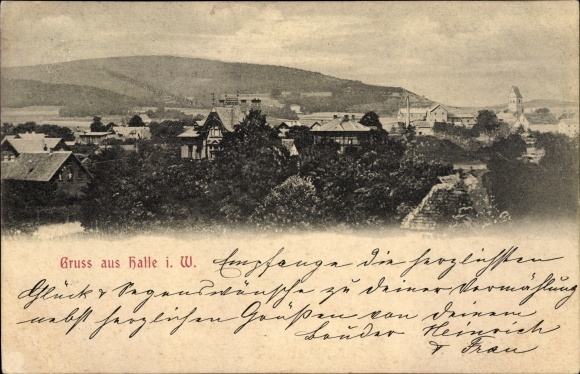 Gruss aus Halle i. W. Empfange die herzlichsten
Glück & Segenswünsche zu deiner Vermählung
nebst herzlichen Grüßen von deinem
Bruder Heinrich
& Frau